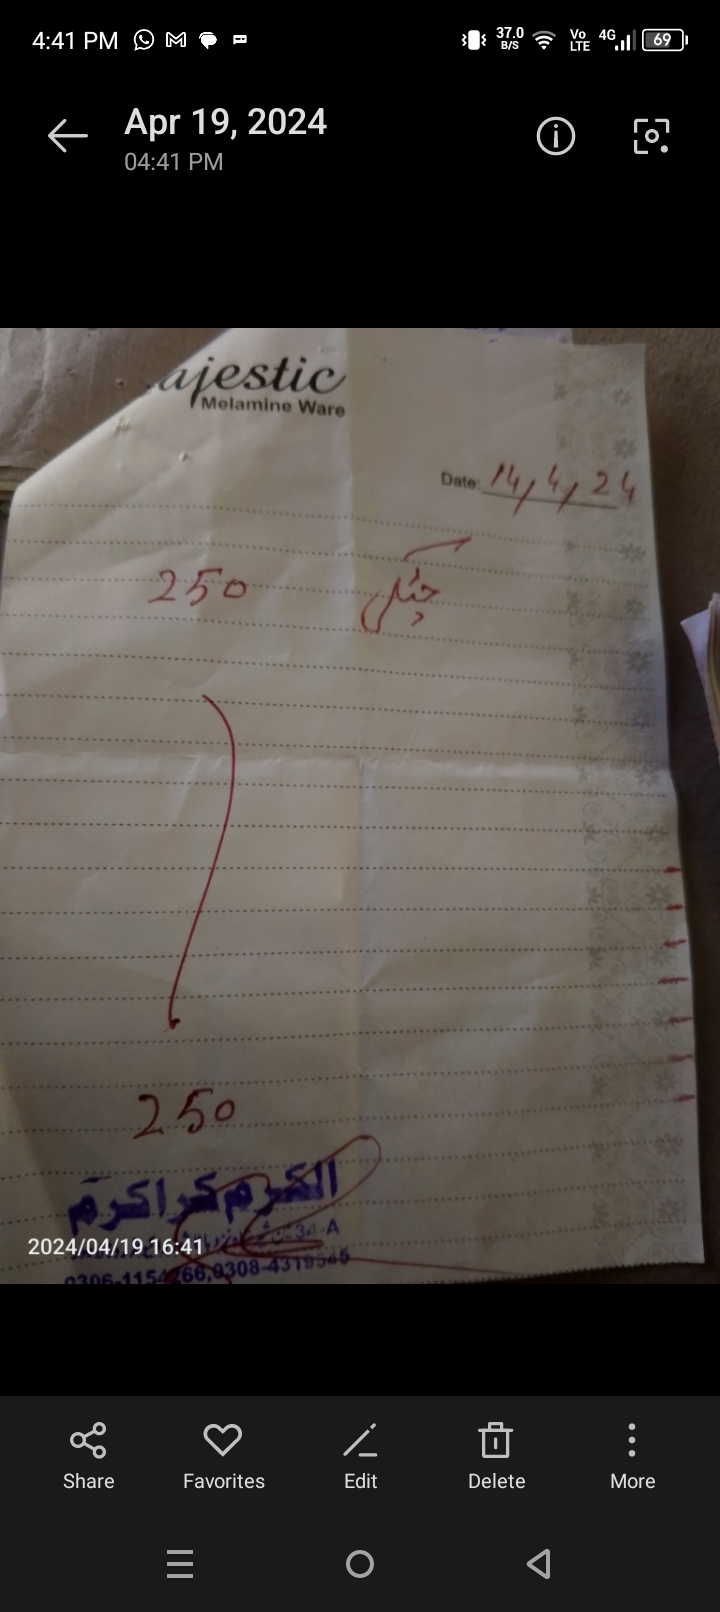 4:41 PM 37.0 B/S Vo LTE 4G 69
Apr 19, 2024
04:41 PM
ajestic
Melamine Ware
Date: 14,4,24
250
250
الکرم کراکرم
34-A
2024/04/19 16:41
0306-1154266,0308-4319546
Share Favorites Edit Delete More